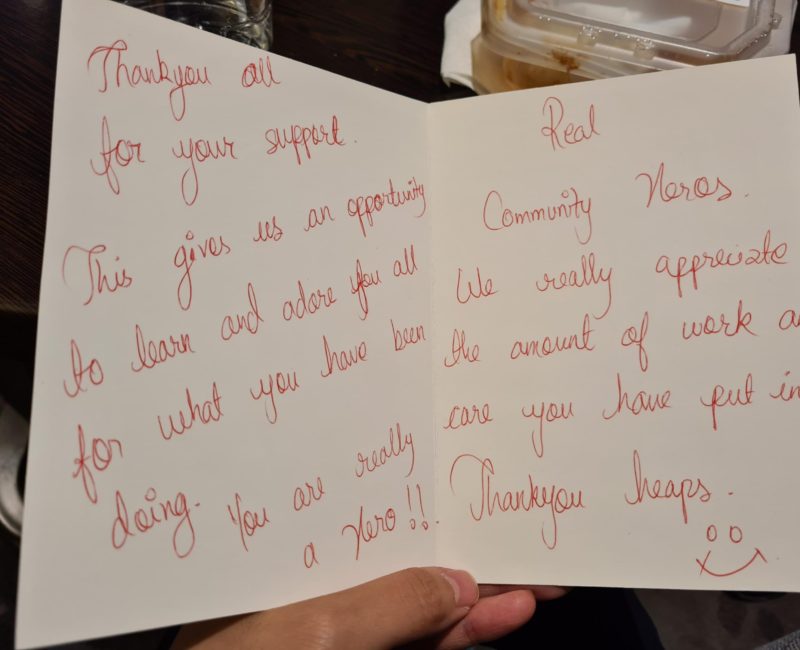 Thankyou all
for your support.
This gives us an opportunity
to learn and adore you all
for what you have been
doing. You are really
a Hero !!
Real
Community Heros.
We really appreciate
the amount of work a
care you have put in
Thankyou heaps.